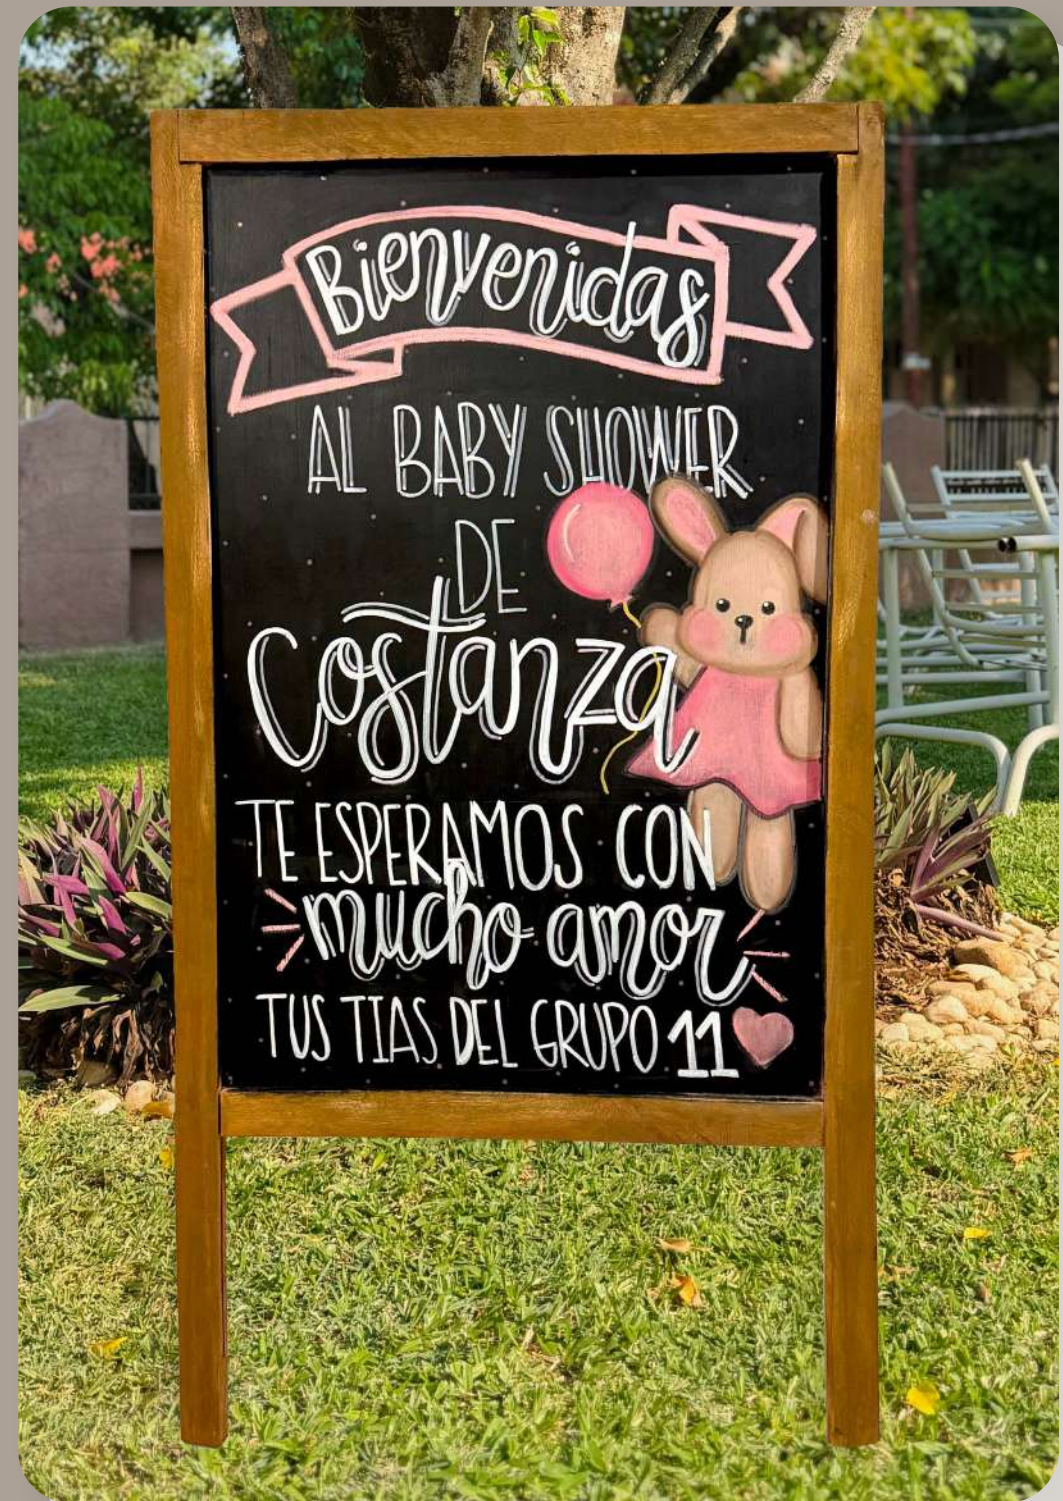 Bienvenidas
AL BABY SHOWER
DE
Costanza
TE ESPERAMOS CON
mucho amor
TUS TIAS DEL GRUPO 11